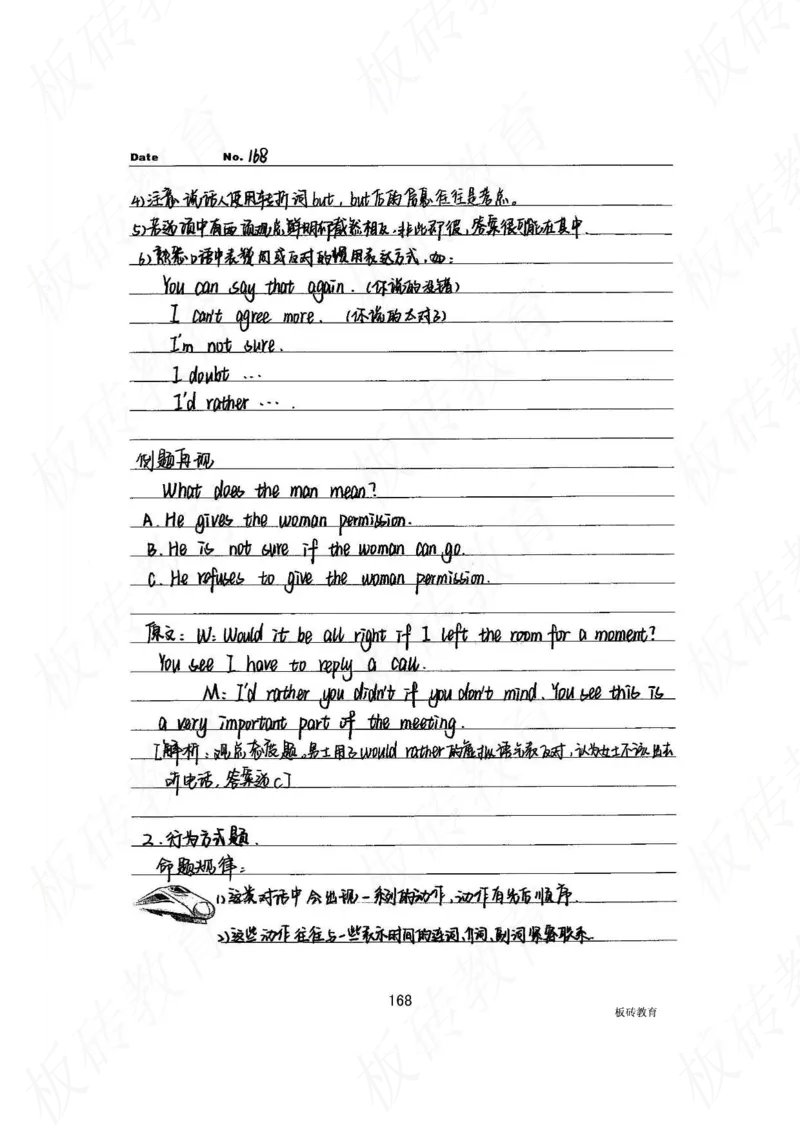 Date No. 168
4)注意说话人使用转折词but，but后的信息往往是考点。
5)若选项中有两项观点鲜明而截然相反，非此即彼，答案很可能在其中.
6)熟悉口语中表赞同或反对的惯用表达方式，如：
You can say that again. (你说的没错)
I can't agree more. (你说的太对了)
I'm not sure.
I doubt ...
I'd rather ... .
例题再现
What does the man mean?
A. He gives the woman permission.
B. He is not sure if the woman can go.
C. He refuses to give the woman permission.
原文: W: Would it be all right if I left the room for a moment?
You see I have to reply a call.
M: I'd rather you didn't if you don't mind. You see this is
a very important part of the meeting.
[解析：观点态度题。男士用了would rather的虚拟语气表反对，认为女士不该出去
听电话，答案选C]
2.行为方式题.
命题规律：
1)这类对话中会出现一系列的动作，动作有先后顺序.
2)这些动作往往与一些表示时间的连词、介词、副词紧密联系.
168
板砖教育